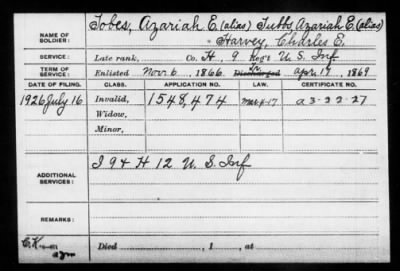 Tobes, Azariah E. (alias) Tubbs, Azariah E. (alias)
NAME OF SOLDIER: " Harvey, Charles E.
SERVICE: Late rank, Co. H, 9 Reg't U.S. Inf
TERM OF SERVICE: Enlisted Nov. 6, 1866 Discharged Apr. 17, 1869
DATE OF FILING. CLASS. APPLICATION NO. LAW. CERTIFICATE NO.
1926 July 16 Invalid, 1548,474 Mar 4-17 a 3-22-27
Widow,
Minor,
ADDITIONAL SERVICES: I 9 & H 12 U.S. Inf
REMARKS:
C.K.
Died , 1 , at